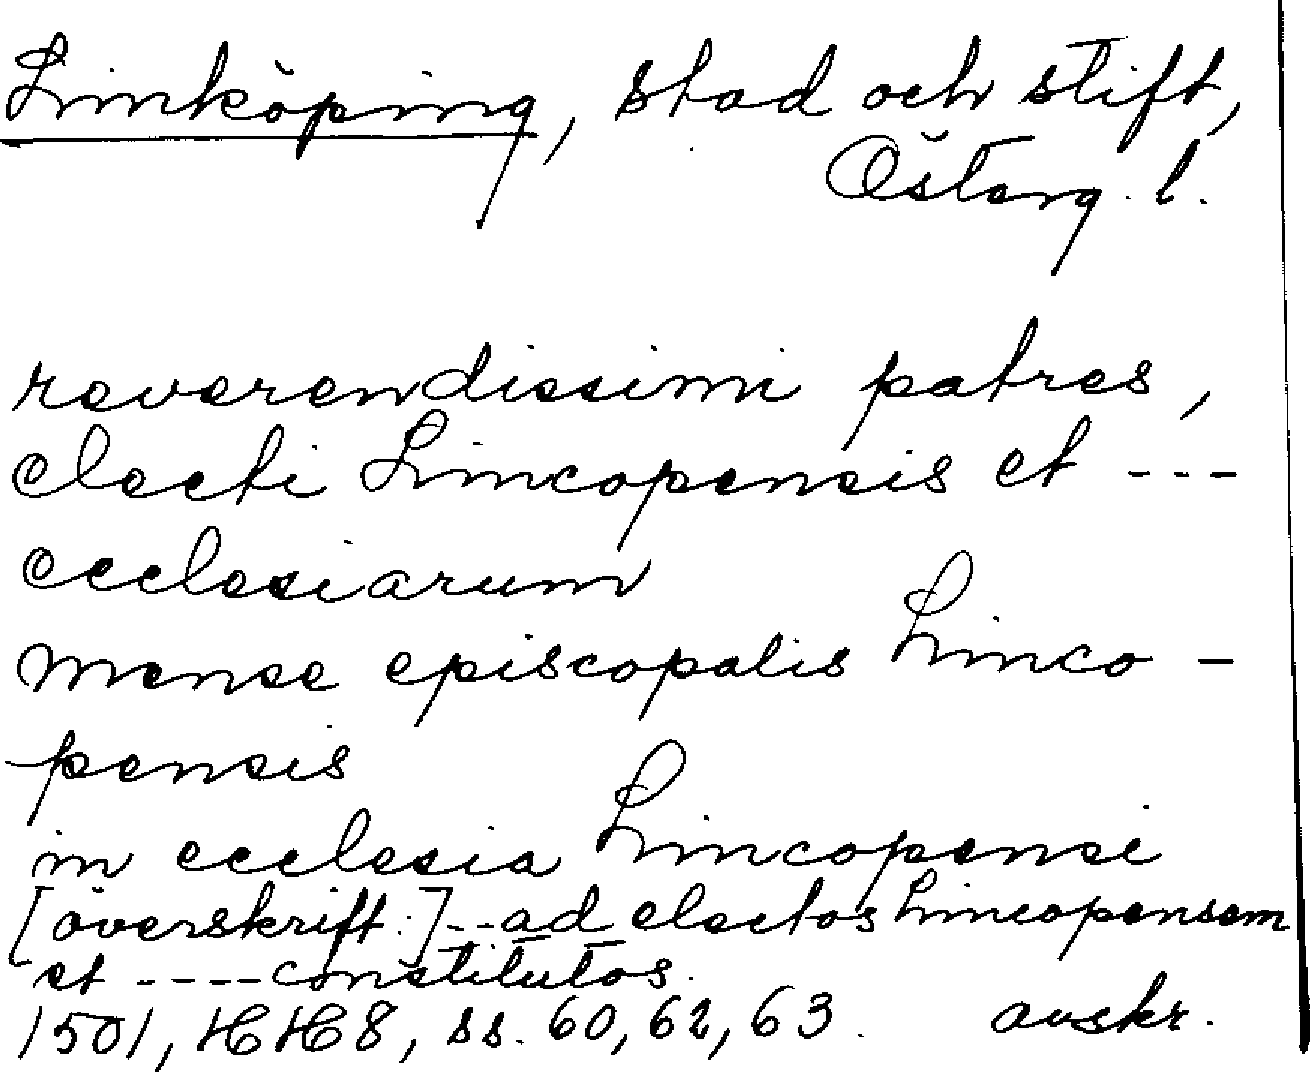 Linköping, stad och stift,
Österg. l.
reverendissimi patres,
electi Lincopensis et ---
ecclesiarum
mense episcopalis Linco-
pensis
in ecclesia Lincopensi
[överskrift:]--ad electos Lincopensem
et ----constitutos.
1501, HH8, ss. 60, 62, 63. avskr.